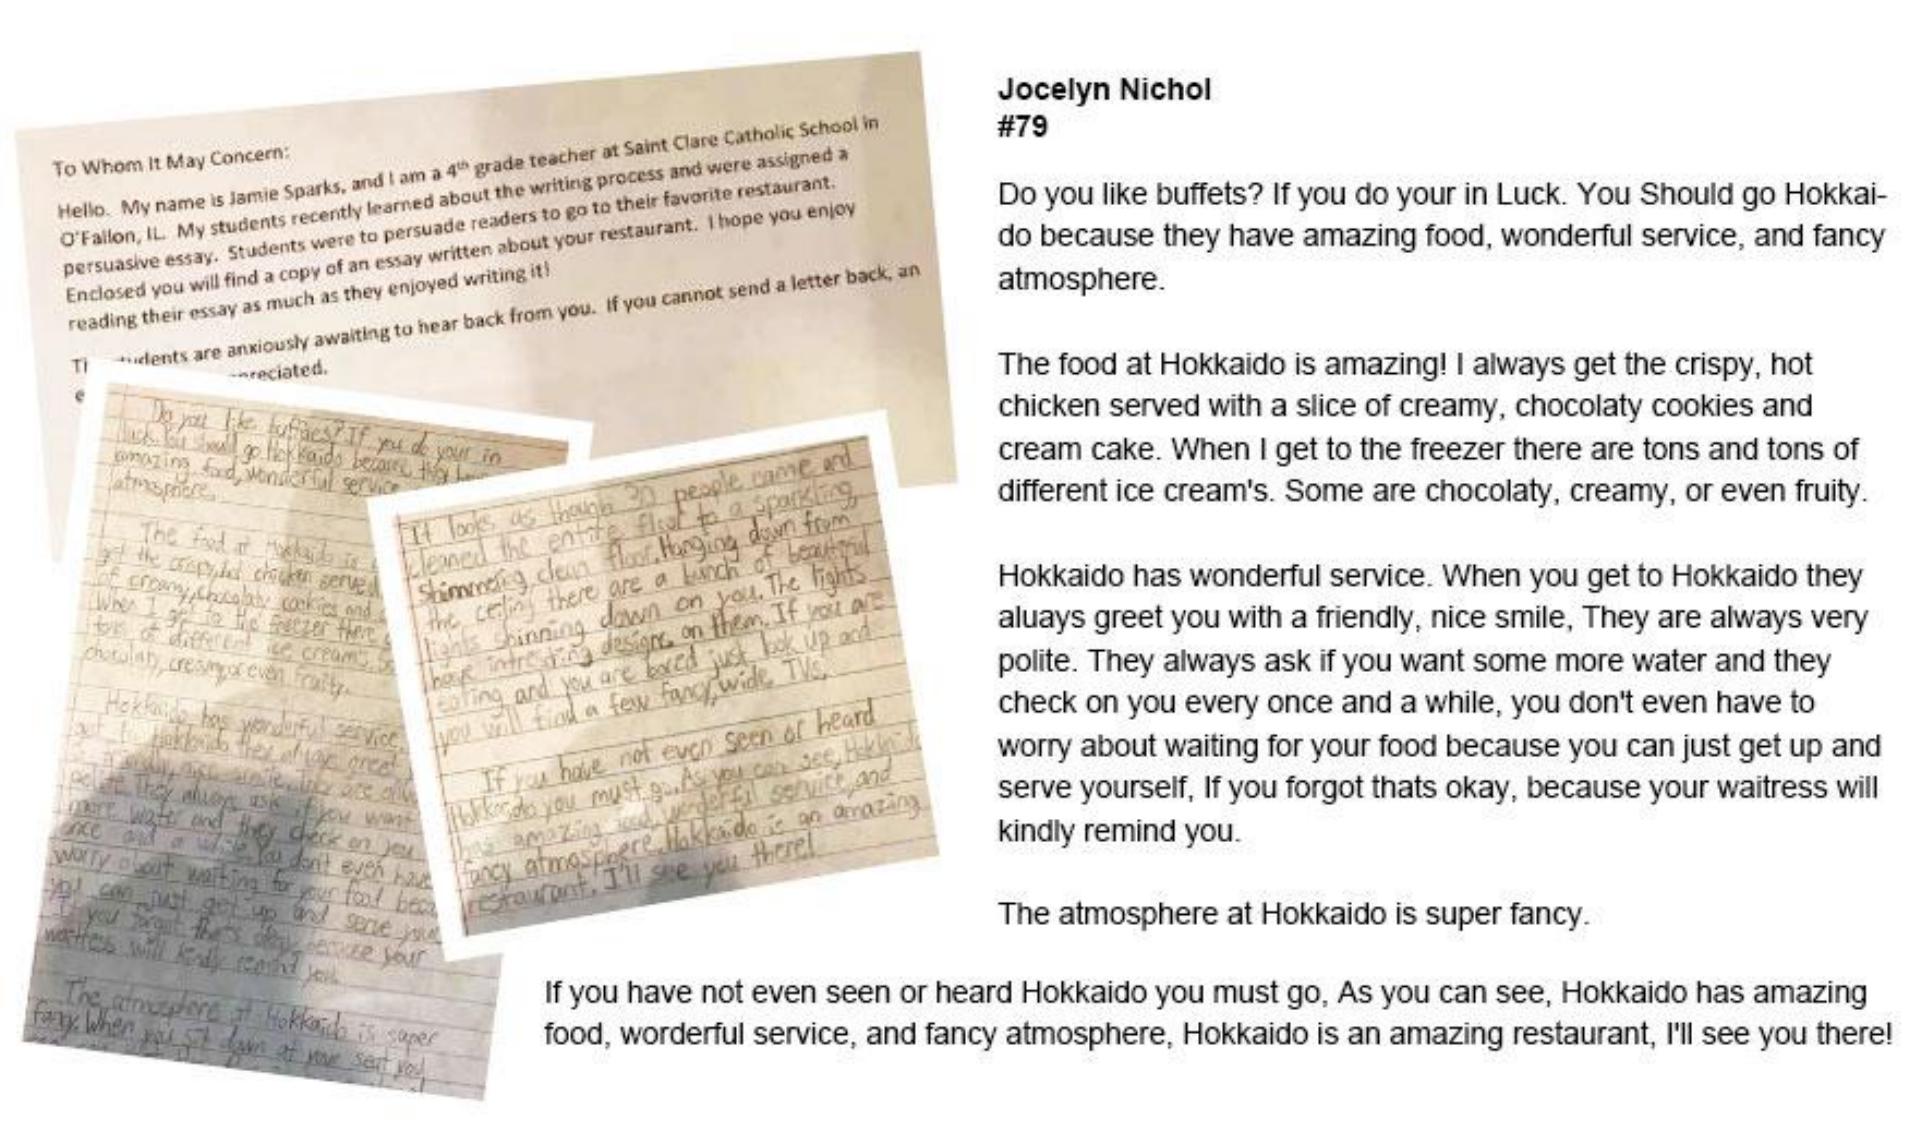 To Whom It May Concern:
Hello. My name is Jamie Sparks, and I am a 4th grade teacher at Saint Clare Catholic School in
O'Fallon, IL. My students recently learned about the writing process and were assigned a
persuasive essay. Students were to persuade readers to go to their favorite restaurant.
Enclosed you will find a copy of an essay written about your restaurant. I hope you enjoy
reading their essay as much as they enjoyed writing it!
students are anxiously awaiting to hear back from you. If you cannot send a letter back, an
Do you like
If you do your in
luck. You should go Hokkaido because they
amazing food, wonderful service
atmosphere.
The food at Hokkaido is
get the crispy, hot chicken served
of creamy, chocolaty cookies and
When I get to the freezer there
tons of different ice cream's
chocolaty, creamy, or even fruity.
Hokkaido has wonderful service.
They always ask if you want
more water and they check on you
once and a while, you don't even have
worry about waiting for your food
you can just get up and serve
If you forgot thats okay, because your
waitress will kindly remind you.
The atmosphere at Hokkaido is super
fancy. When you sit down at your seat you
It looks as though 30 people came and
cleaned the entire floor to a sparkling,
shimmering, clean floor. Hanging down from
the ceiling there are a bunch of beautiful
lights shinning down on you. The lights
have intresting designs on them. If you are
eating and you are bored just look up and
you will find a few fancy, wide, TVs.
If you have not even seen or heard
Hokkaido you must go. As you can see, Hokkaido
has amazing food, wonderful service, and
fancy atmosphere. Hokkaido is an amazing
restaurant. I'll see you there!
Jocelyn Nichol
#79
Do you like buffets? If you do your in Luck. You Should go Hokkai-
do because they have amazing food, wonderful service, and fancy
atmosphere.
The food at Hokkaido is amazing! I always get the crispy, hot
chicken served with a slice of creamy, chocolaty cookies and
cream cake. When I get to the freezer there are tons and tons of
different ice cream's. Some are chocolaty, creamy, or even fruity.
Hokkaido has wonderful service. When you get to Hokkaido they
aluays greet you with a friendly, nice smile, They are always very
polite. They always ask if you want some more water and they
check on you every once and a while, you don't even have to
worry about waiting for your food because you can just get up and
serve yourself, If you forgot thats okay, because your waitress will
kindly remind you.
The atmosphere at Hokkaido is super fancy.
If you have not even seen or heard Hokkaido you must go, As you can see, Hokkaido has amazing
food, worderful service, and fancy atmosphere, Hokkaido is an amazing restaurant, I'll see you there!